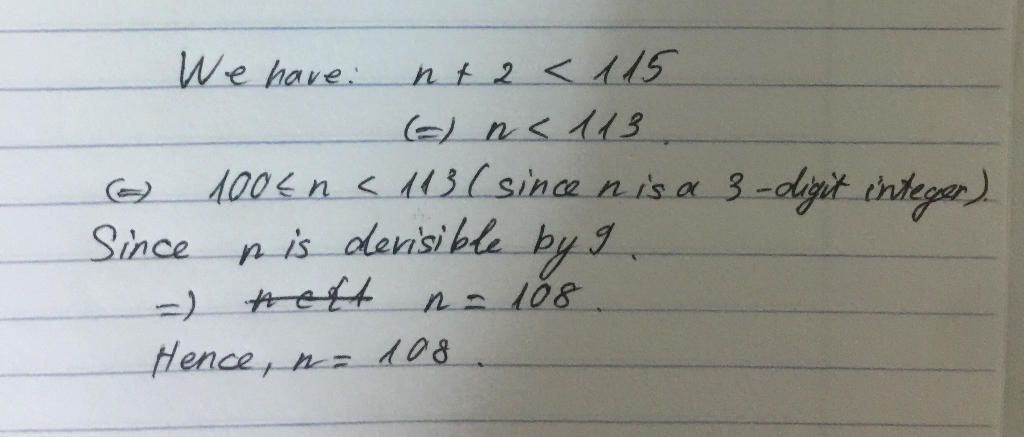 We have: n + 2 < 115
(=) n < 113.
(=) 100 ≤ n < 113 (since n is a 3-digit integer).
Since n is devisible by 9.
=) n = 108.
Hence, n = 108.